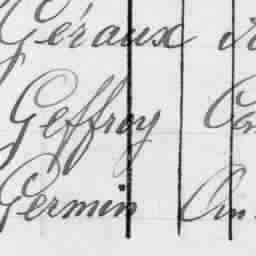 Géraux
Geffroy
Germin